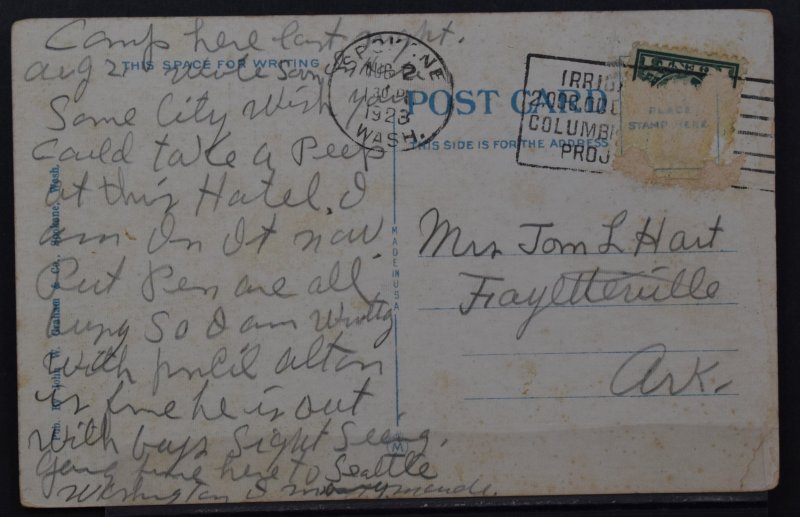 Camp here last night.
Aug 21
THIS SPACE FOR WRITING
Some City Wish you
Could take a Peep
at this Hotel. I
am In It now
But Pen are all
so I am writtg
With pincil alton
is fine he is out
With boys Sight Seeing.
Going from here to Seattle
Washington
Pub. By John W. Graham & Co., Spokane, Wash.
MADE IN USA
M
SPOKANE
AUG 2
1923
WASH.
IRRIG
2,000,000
COLUMBI
PROJ
POST CARD
THIS SIDE IS FOR THE ADDRESS
PLACE
STAMP HERE
Mrs Tom L Hart
Fayetteville
Ark.